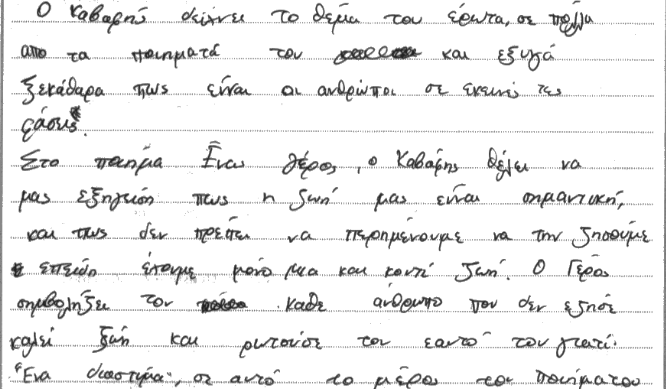 Ο Καβαφής δείχνει το θέμα του έρωτα, σε πολλα
απο τα ποιηματά του και εξυγά
ξεκάθαρα πως είναι οι ανθρώποι σε εκεινές τες
φάσεις.
Στο ποιήμα Ένας γέρος, ο Καβαφης θέλει να
μας εξηγείση πως η ζωή μας είναι σημαντική,
και πως δεν πρέπει να περημένουμε να την ζησουμε
επειδη έχουμε μονο μια και κοντή ζωή. Ο Γέρος
σημβολήζει τον καθε άνθρωπο που δεν εζησε
καλεί ζωή και ρωτούσε τον εαυτό του γιατί.
"Ενα διαστημα", σε αυτό το μέρος του ποιήματου